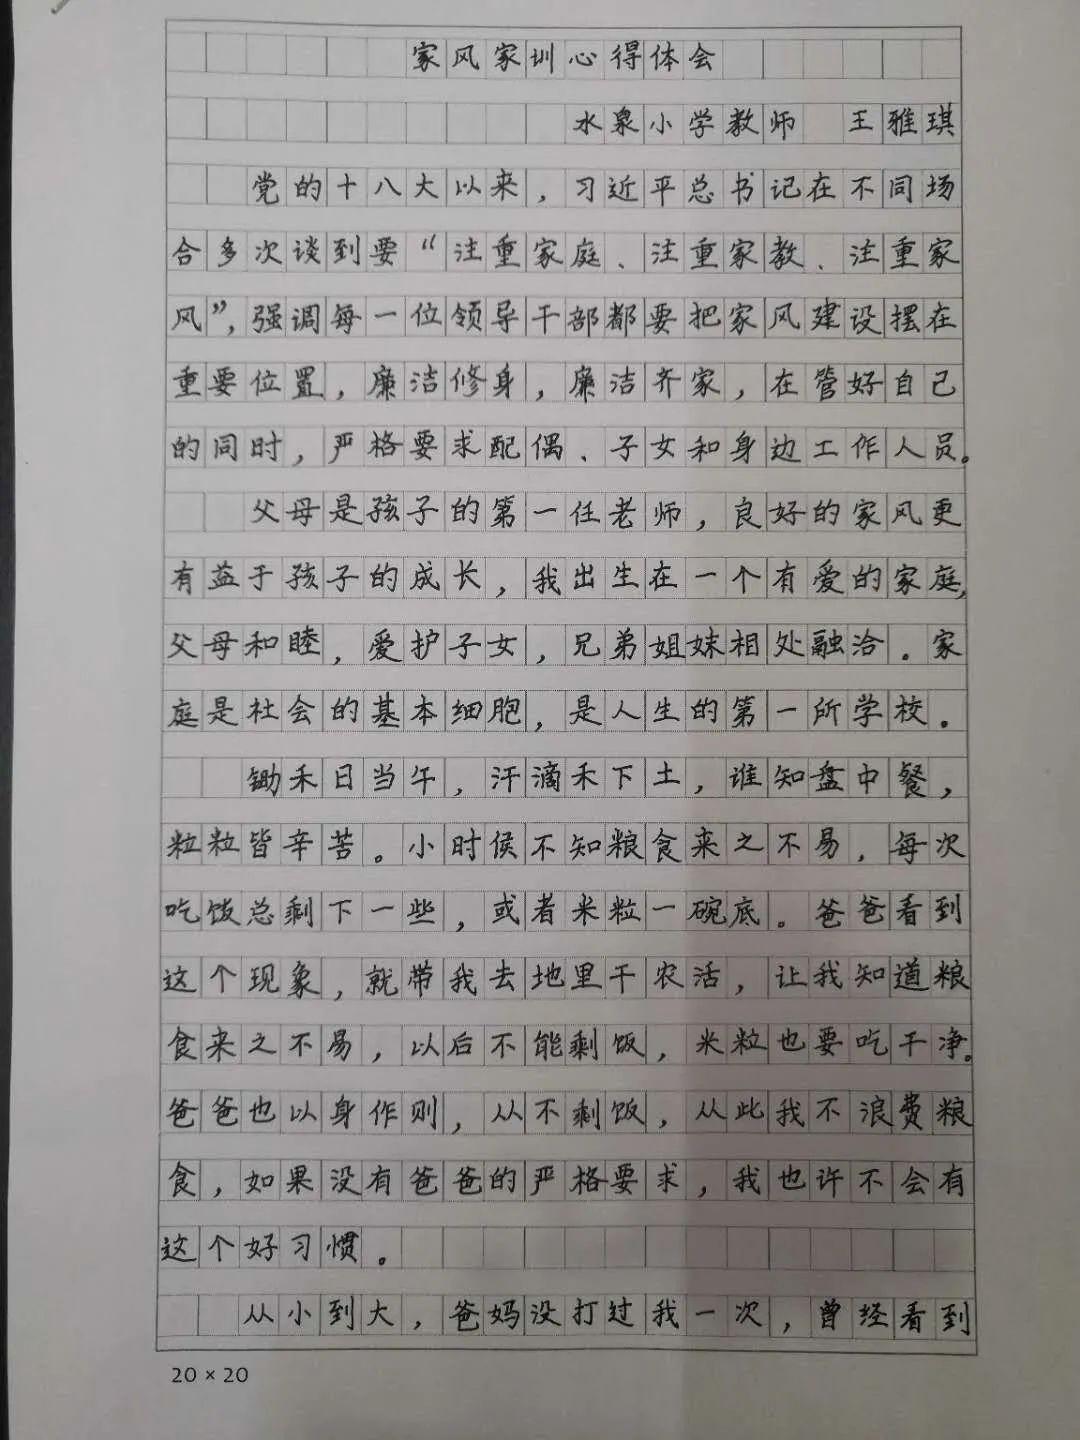 家风家训心得体会
水泉小学教师 王雅琪
党的十八大以来，习近平总书记在不同场
合多次谈到要“注重家庭、注重家教、注重家
风”，强调每一位领导干部都要把家风建设摆在
重要位置，廉洁修身，廉洁齐家，在管好自己
的同时，严格要求配偶、子女和身边工作人员。
父母是孩子的第一任老师，良好的家风更
有益于孩子的成长，我出生在一个有爱的家庭，
父母和睦，爱护子女，兄弟姐妹相处融洽．家
庭是社会的基本细胞，是人生的第一所学校．
锄禾日当午，汗滴禾下土，谁知盘中餐，
粒粒皆辛苦。小时侯不知粮食来之不易，每次
吃饭总剩下一些，或者米粒一碗底。爸爸看到
这个现象，就带我去地里干农活，让我知道粮
食来之不易，以后不能剩饭，米粒也要吃干净。
爸爸也以身作则，从不剩饭，从此我不浪费粮
食，如果没有爸爸的严格要求，我也许不会有
这个好习惯。
从小到大，爸妈没打过我一次，曾经看到
20×20